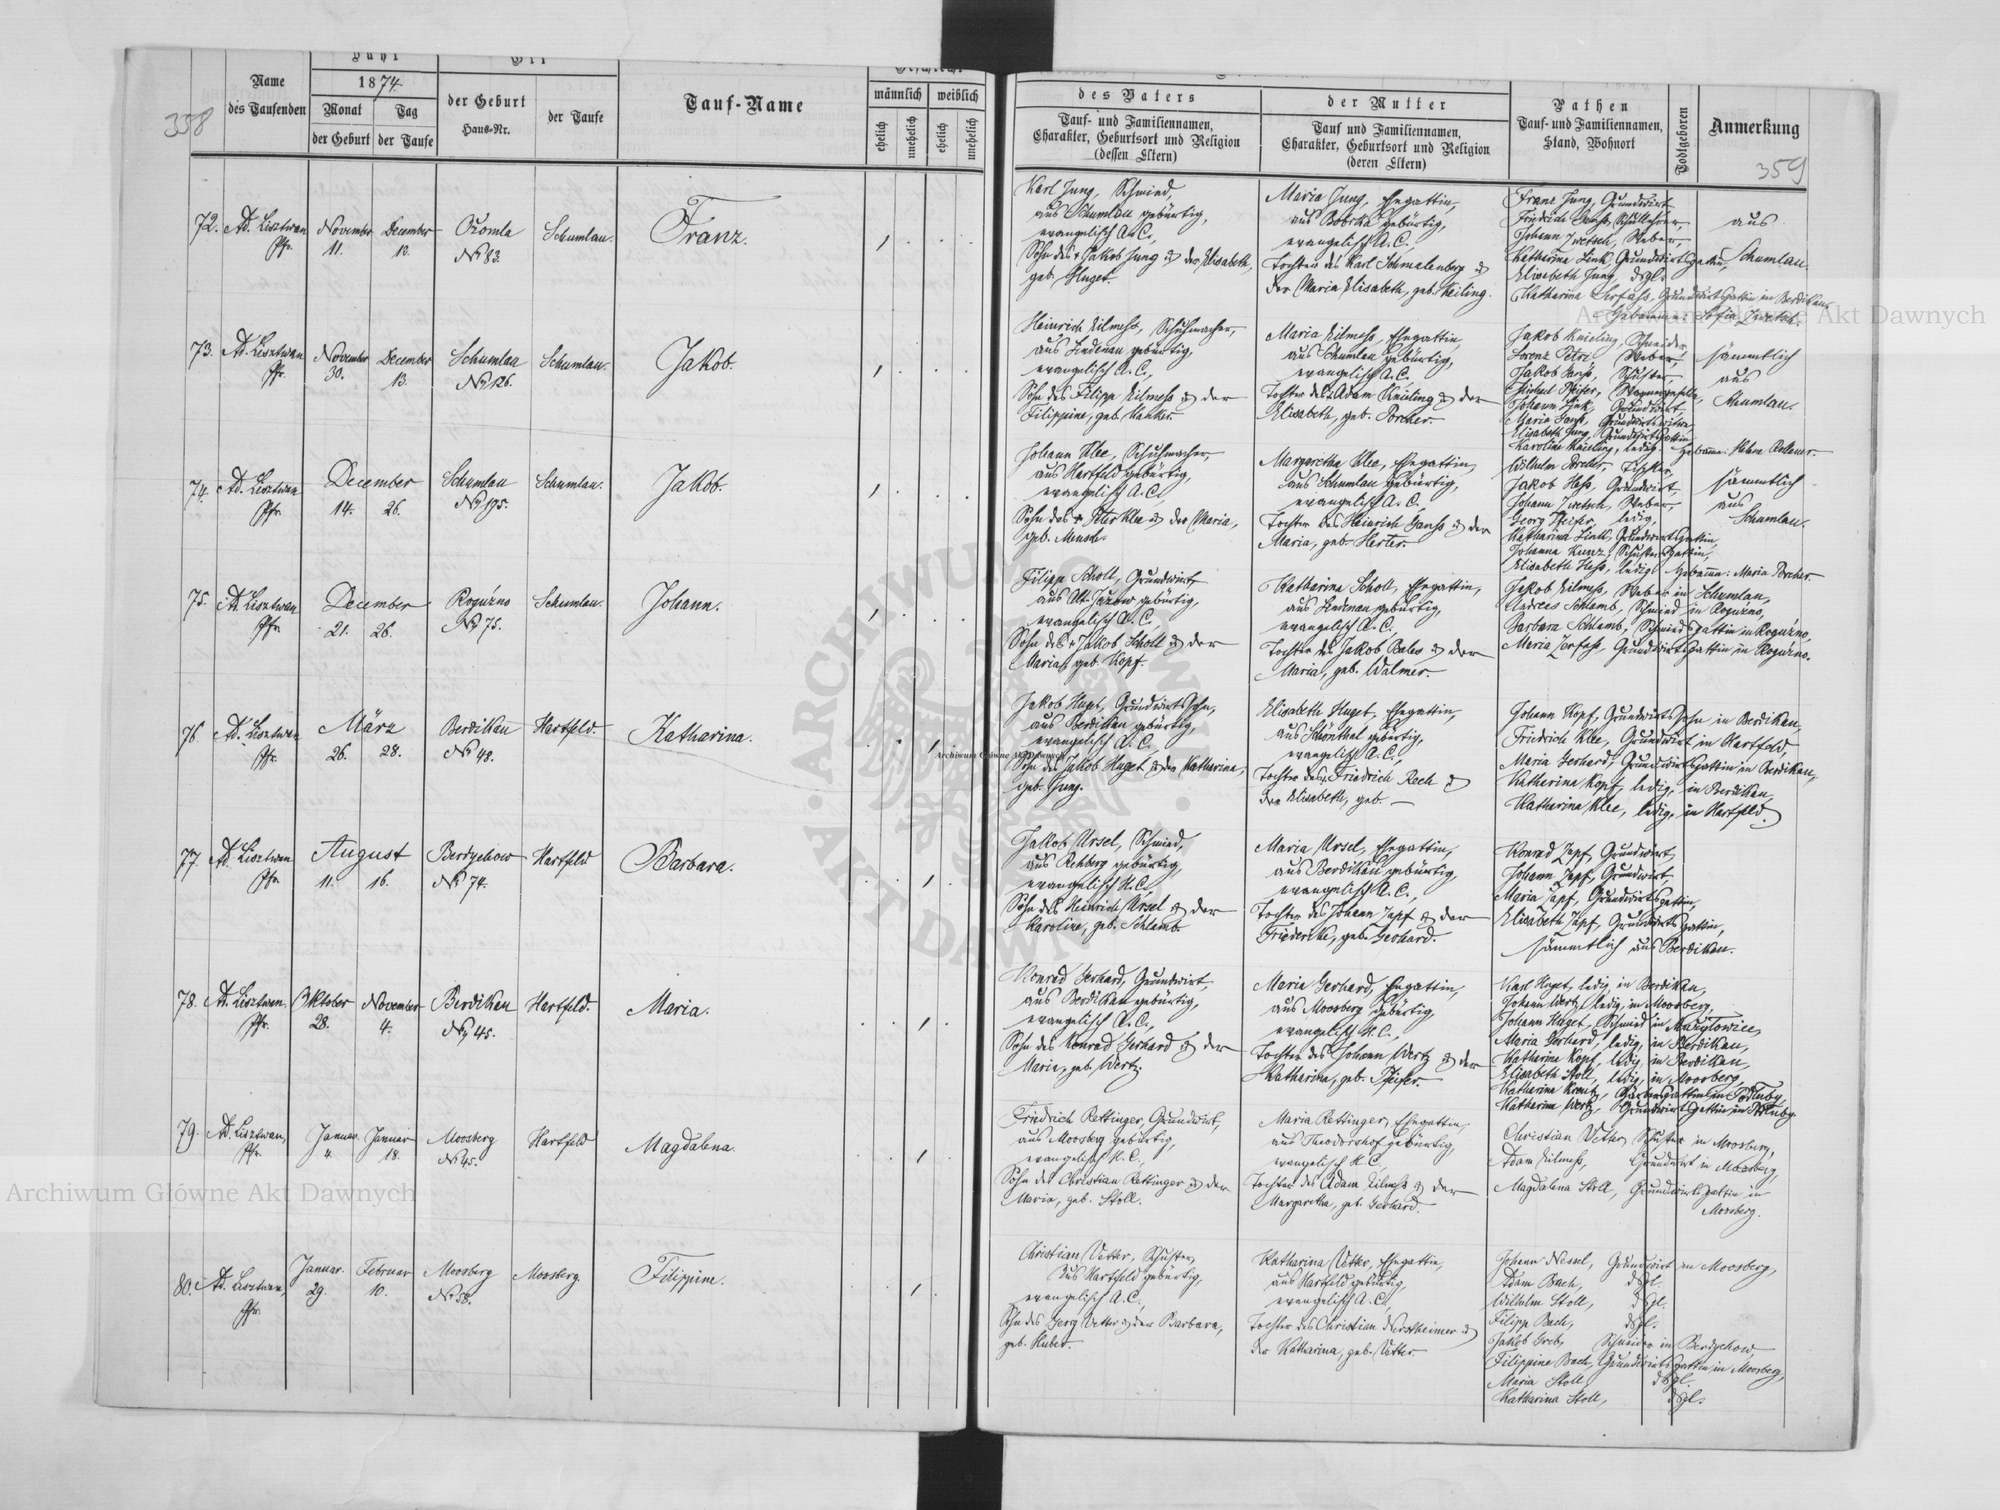 358
Name
des Taufenden
Jahr
1874.
Monat
Tag
der Geburt
der Taufe
Ort
der Geburt
Haus-Nr.
der Taufe
Tauf-Name
Geschlecht
männlich
weiblich
ehelich
unehelich
ehelich
unehelich
des Vaters
Tauf- und Familiennamen,
Charakter, Geburtsort und Religion
(dessen Eltern)
der Mutter
Tauf und Familiennamen,
Charakter, Geburtsort und Religion
(deren Eltern)
Pathen
Tauf- und Familiennamen,
Stand, Wohnort
Todtgeboren
Anmerkung
359
72. Ad. Lisztwan
Pfr.
November
11.
December
13.
Komla
№ 83.
Schumlau.
Franz.
Karl Jung, Schmied,
aus Schumlau gebürtig,
evangelisch A.C.,
Sohn des † Jakob Jung & der Elisabeth,
geb. Huget.
Maria Jung, Ehegattin,
aus gebürtig,
evangelisch A.C.,
Tochter des Karl Schmalenberg &
der Maria Elisabeth, geb. Keiling.
Franz Jung, Grundwirt,
Friedrich Schullehrer,
Johann Zwetsch, Weber,
Katharina Link, Grundwirtsgattin,
Elisabeth Jung, dsgl.
Katharina Zerfass, Grundwirtsgattin in Berdikau
Gebamme: Sofia Zwetsch.
aus
Schumlau.
73. Ad. Lisztwan
Pfr.
November
30.
December
13.
Schumlau
№ 126.
Schumlau.
Jakob.
Heinrich Kilmess, Schuhmacher,
aus Lindenau gebürtig,
evangelisch A.C.,
Sohn des Filipp Kilmess & der
Filippine, geb.
Maria Kilmess, Ehegattin,
aus Schumlau gebürtig,
evangelisch A.C.,
Tochter des Adam Knieling & der
Elisabeth, geb. Porcher.
Jakob Knieling, Schneider,
Lorenz Petri, Weber,
Jakob Ganss, Schuster,
Michael Pfeifer, Wagnergeselle,
Johann Link, Grundwirt,
Maria Ganss, Grundwirtswitwe,
Elisabeth Jung, Grundwirtsgattin,
Karoline Knieling, ledig. Gebamme:
sämmtlich
aus
Schumlau.
74. Ad. Lisztwan
Pfr.
December
14. 26.
Schumlau
№ 195.
Schumlau.
Jakob.
Johann Klee, Schuhmacher,
aus Hartfeld gebürtig,
evangelisch A.C.,
Sohn des † Peter Klee & der Maria,
geb.
Margaretha Klee, Ehegattin,
aus Schumlau gebürtig,
evangelisch A.C.,
Tochter des Heinrich Ganss & der
Maria, geb. Herter.
Wilhelm Porcher, Tischler,
Jakob Hess, Grundwirt,
Johann Zwetsch, Weber,
Georg Pfeifer, ledig,
Katharina Link, Grundwirtsgattin,
Johanna Kunz, Schustersgattin,
Elisabeth Hess, ledig. Gebamme: Maria Porcher.
sämmtlich
aus
Schumlau.
75. Ad. Lisztwan
Pfr.
December
21. 26.
Roguzno
№ 75.
Schumlau.
Johann.
Filipp Scholl, Grundwirt
aus Alt Jazow gebürtig,
evangelisch A.C.,
Sohn des † Jakob Scholl & der
Maria, geb. Kopf.
Katharina Scholl, Ehegattin,
aus Lindenau gebürtig,
evangelisch A.C.,
Tochter des Jakob Bales & der
Maria, geb. Walmer.
Jakob Kilmess, Weber in Schumlau,
Andreas Schlamb, Schmied in Roguzno,
Barbara Schlamb, Schmiedsgattin in Roguzno,
Maria Zerfass, Grundwirtsgattin in Roguzno.
76. Ad. Lisztwan
Pfr.
März
26. 28.
Berdikau
№ 48.
Hartfeld.
Katharina.
Jakob Huget, Grundwirtssohn,
aus Berdikau gebürtig,
evangelisch A.C.,
Sohn des Jakob Huget & der Katharina,
geb. Jung.
Elisabeth Huget, Ehegattin,
aus Schönthal gebürtig,
evangelisch A.C.,
Tochter des Friedrich Rech &
der Elisabeth, geb. —
Johann Kopf, Grundwirtssohn in Berdikau,
Friedrich Klee, Grundwirt in Hartfeld,
Maria Gerhard, Grundwirtsgattin in Berdikau,
Katharina Kopf, ledig, in Berdikau,
Katharina Klee, ledig, in Hartfeld.
77. Ad. Lisztwan
Pfr.
August
11. 16.
Berdychow
№ 74.
Hartfeld
Barbara.
Jakob Ursel, Schmied,
aus Rehberg gebürtig,
evangelisch H.C.,
Sohn des Heinrich Ursel & der
Karoline, geb. Schlamb.
Maria Ursel, Ehegattin,
aus Berdikau gebürtig,
evangelisch A.C.,
Tochter des Johann Zapf & der
Friedericke, geb. Gerhard.
Konrad Zapf, Grundwirt,
Johann Zapf, Grundwirt,
Maria Zapf, Grundwirtsgattin,
Elisabeth Zapf, Grundwirtsgattin,
sämmtlich aus Berdikau.
78. Ad. Lisztwan,
Pfr.
Oktober
28.
November
4.
Berdikau
№ 45.
Hartfeld.
Maria.
Konrad Gerhard, Grundwirt,
aus Berdikau gebürtig,
evangelisch A.C.,
Sohn des Konrad Gerhard & der
Maria, geb. Wertz.
Maria Gerhard, Ehegattin,
aus Moosberg gebürtig,
evangelisch H.C.,
Tochter des Johann Wertz & der
Katharina, geb. Pfeifer.
Karl Huget, ledig, in Berdikau,
Johann Wertz, ledig, in Moosberg,
Johann Huget, Schmied in Mużyłowice,
Maria Gerhard, ledig, in Berdikau,
Katharina Kopf, ledig, in Berdikau,
Elisabeth Stoll, ledig, in Moosberg,
Katharina Kreutz,
Katharina Wertz, Grundwirtsgattin in
79. Ad. Lisztwan,
Pfr.
Januar
4.
Januar
18.
Moosberg
№ 45.
Hartfeld
Magdalena.
Friedrich Rettinger, Grundwirt,
aus Moosberg gebürtig,
evangelisch H.C.,
Sohn des Christian Rettinger & der
Maria, geb. Stoll.
Maria Rettinger, Ehegattin,
aus Theodorshof gebürtig,
evangelisch H.C.,
Tochter des Adam Kilmess & der
Margaretha, geb. Gerhard.
Christian Vetter, Schuster in Moosberg,
Adam Kilmess, Grundwirt in Moosberg,
Magdalena Stoll, Grundwirtsgattin in
Moosberg.
80. Ad. Lisztwan,
Pfr.
Januar.
29.
Februar
10.
Moosberg
№ 38.
Moosberg.
Filippine.
Christian Vetter, Schuster,
aus Hartfeld gebürtig,
evangelisch A.C.,
Sohn des Georg Vetter & der Barbara,
geb. Huber.
Katharina Vetter, Ehegattin,
aus Hartfeld gebürtig,
evangelisch A.C.,
Tochter des Christian Nerstheimer &
der Katharina, geb. Vetter
Johann Nessel, Grundwirt in Moosberg,
Adam Bach, dsgl.
Wilhelm Stoll, dsgl.
Filipp Bach, dsgl.
Jakob Greb, Schneider in Berdychow
Filippine Bach, Grundwirtsgattin in Moosberg,
Maria Stoll, dsgl.
Katharina Stoll, dsgl.
Archiwum Główne Akt Dawnych
Archiwum Główne Akt Dawnych
Archiwum Główne Akt Dawnych
ARCHIWUM GŁÓWNE AKT DAWNYCH